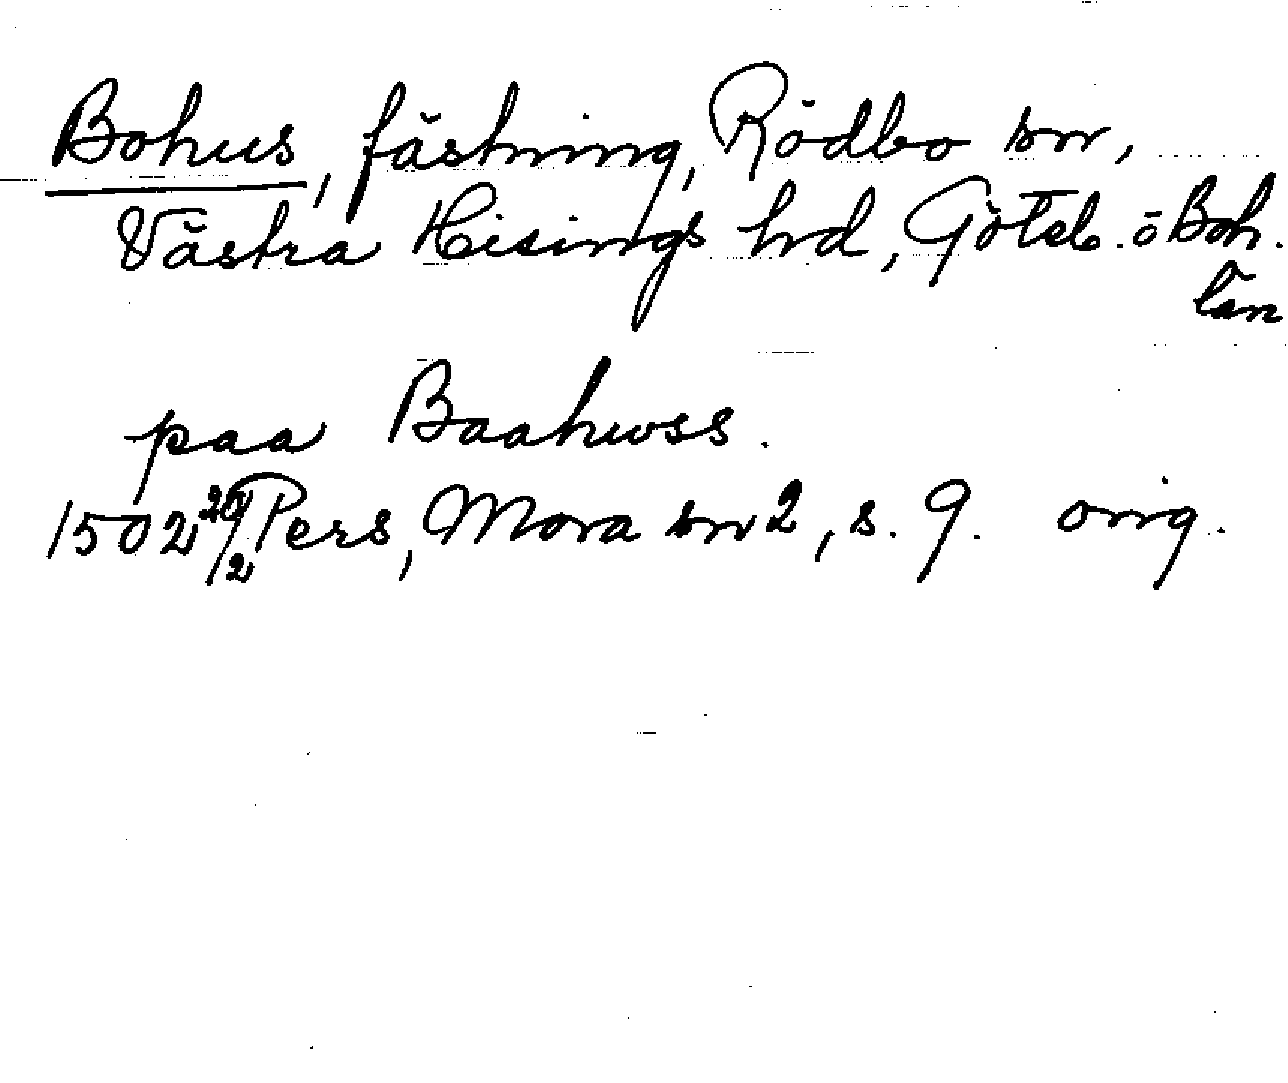 Bohus, fästning, Rödbo sn,
Västra Hisings hd, Göteb. o Boh.
län
paa Baahwss.
1502 20/2 Pers, Mora sn 2, s. 9. orig.